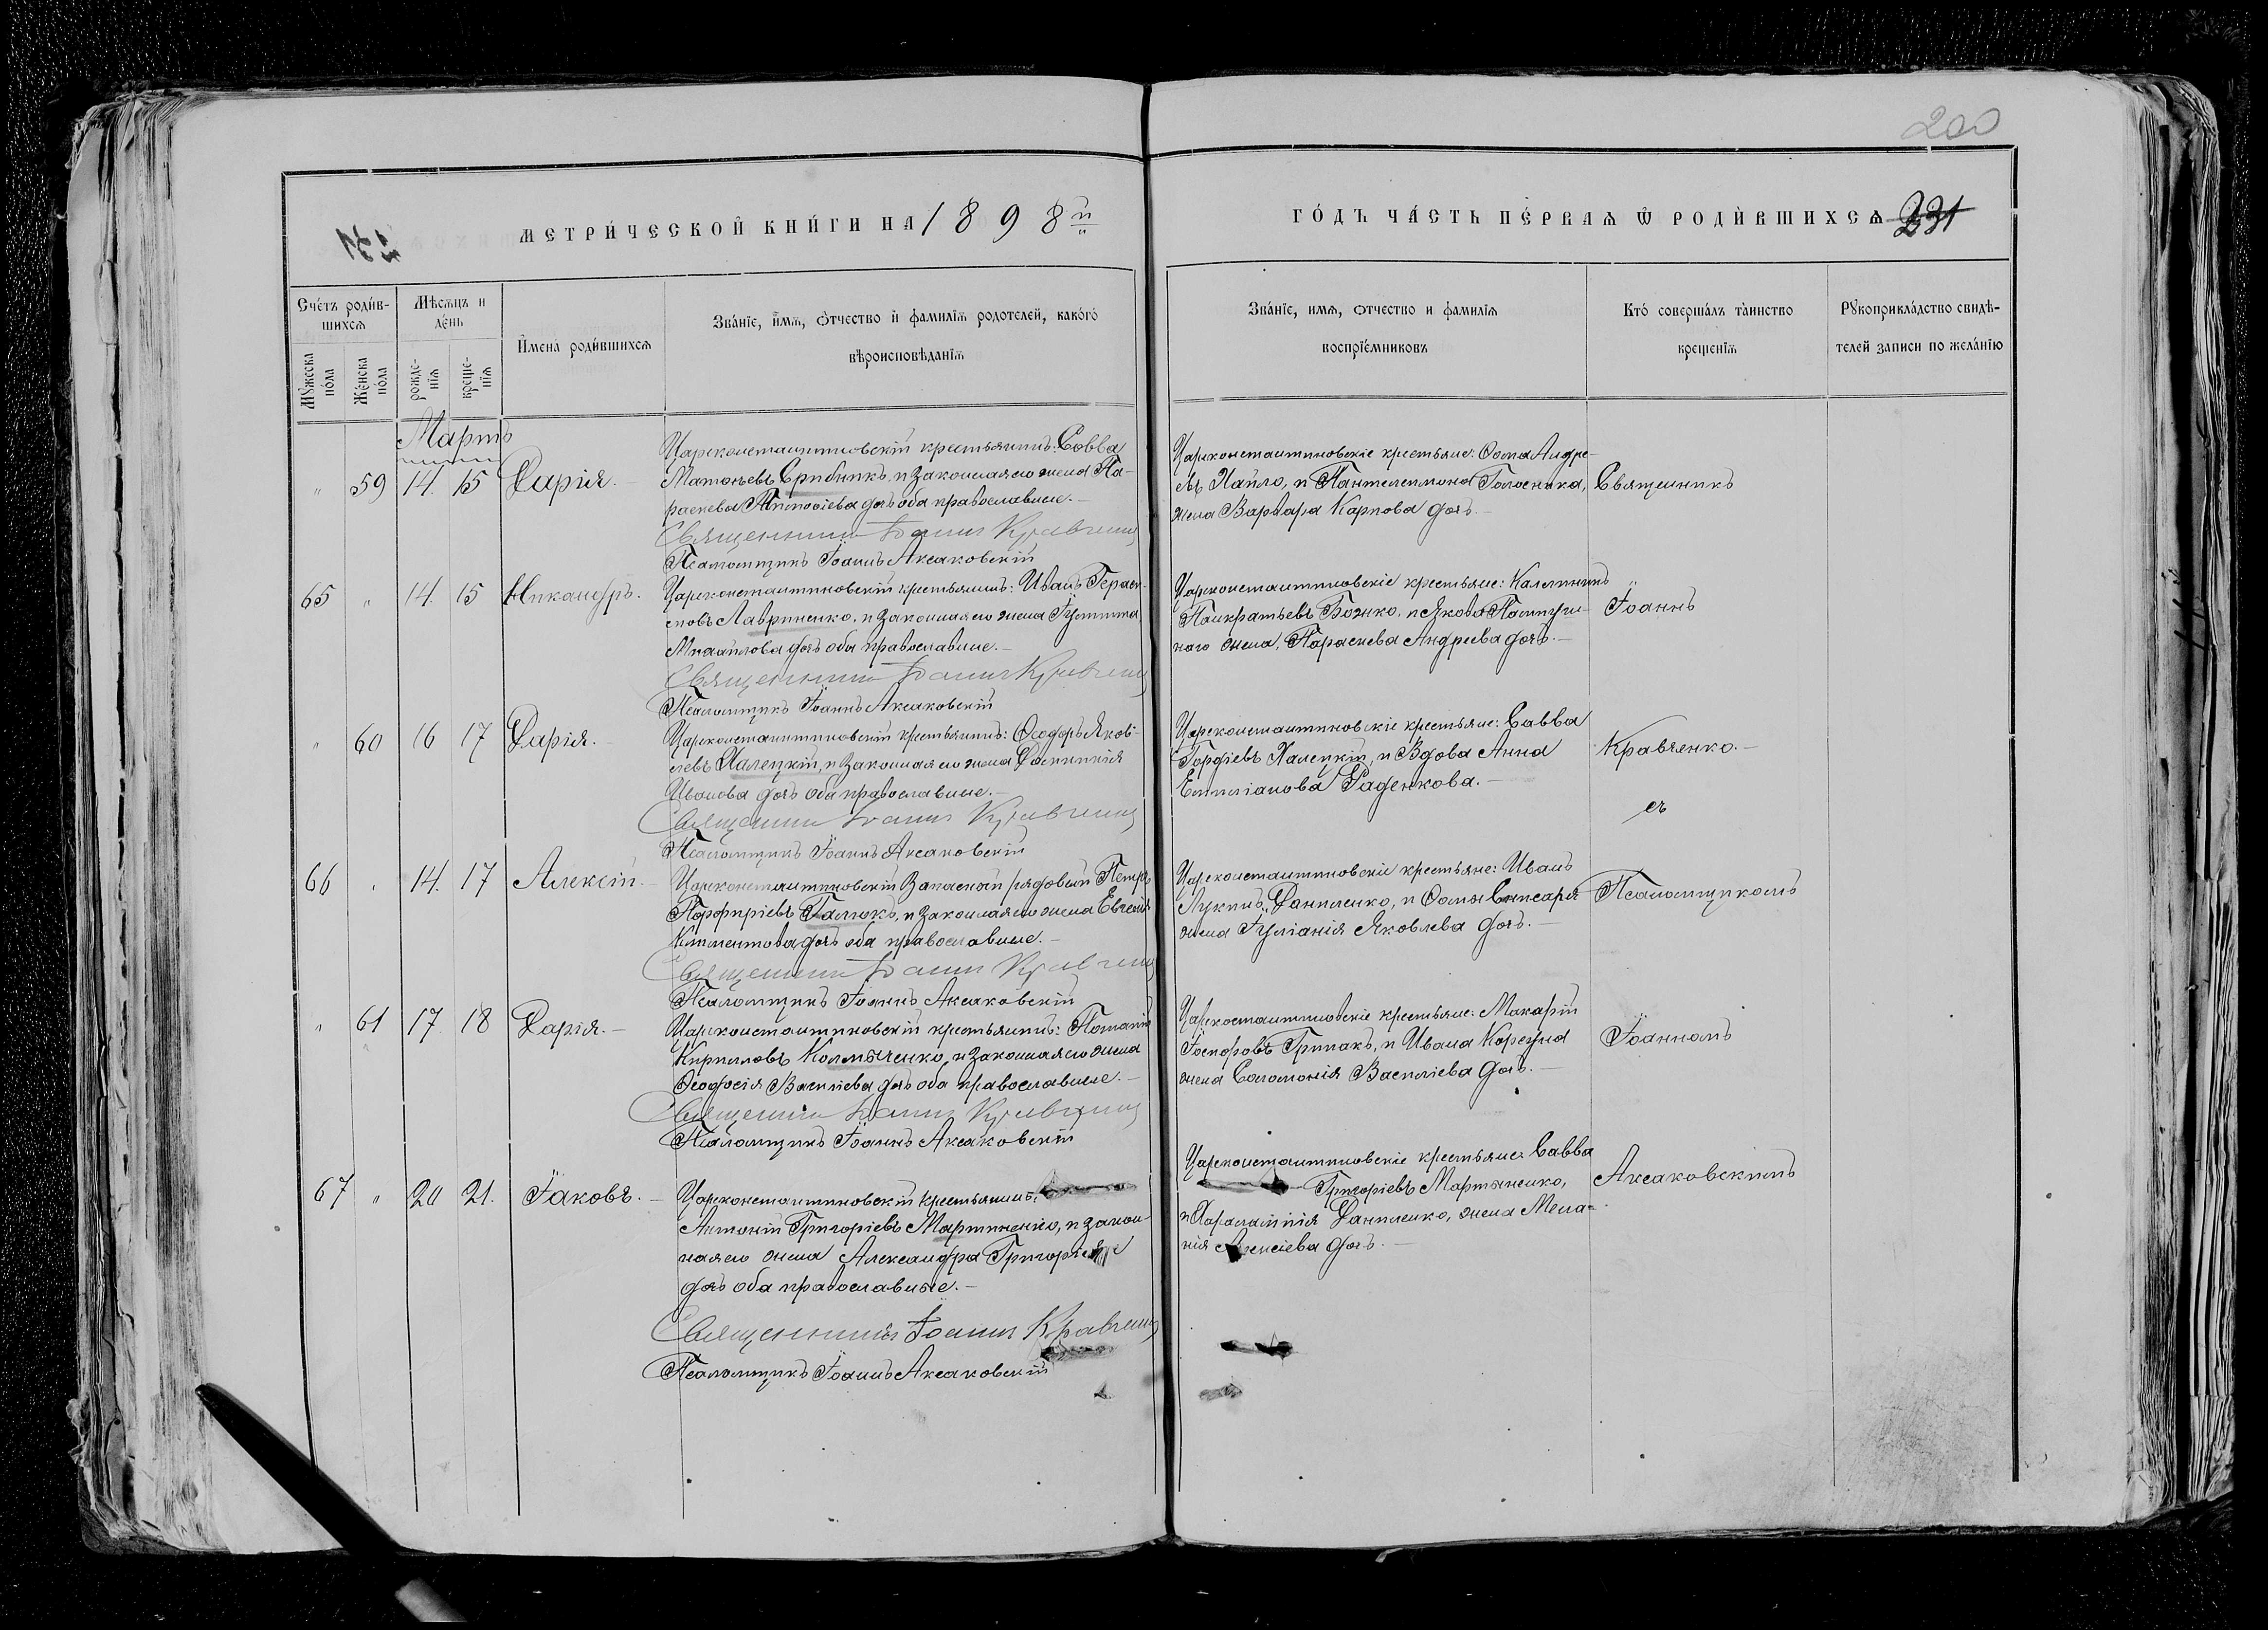 200
МЕТРИ́ЧЕСКОЙ КНИ́ГИ НА 1898й
ГО́ДЪ ЧА́СТЬ ПЕ́РВАѦ Ѿ РОДИ́ВШИХСѦ 231
Сче́тъ роди́в-
шихсѧ
Мѣсѧцъ и
де́нь
И́мена̀ роди́вшихсѧ
Зва́нїе, и҆́мѧ, ѻ҆́тчество и҆ фамилїѧ родотелей, како́гѡ
вѣроисповѣданїѧ
Мꙋ́жеска
по́ла
Же́нска
по́ла
рожде-
нїѧ
креще-
нїѧ
Зва́нїе, имѧ, ѻтчество и фамилїѧ
воспрїе́мниковъ
Кто́ соверша́лъ та̀инство
креще́нїѧ
Рꙋкоприкла́дство свидѣ-
телей записи по жела́нїю
Мартъ
" 59 14. 15 Дарія.
Цареконстантиновскій крестьянинъ: Савва
Матѳѣевъ Срибникъ, и законная его жена Па-
раскева дочь оба православные.
Священникъ Іоаннъ Кравченко
Псаломщикъ Іоаннъ Аксаковскій
Цареконстантиновскіе крестьяне: Ѳома Андре-
евъ Хайло, и Пантелеимона жена Варвара Карпова дочь.
Священникъ
65 " 14. 15 Никандръ.
Цареконстантиновскій крестьянинъ: Иванъ Гераси-
мовъ Лавриненко, и законная его жена Іулитта
Михайлова дочь оба православные.
Священникъ Іоаннъ Кравченко
Псаломщикъ Іоаннъ Аксаковскій
Цареконстантиновскіе крестьяне: Каллиникъ
Панкратьевъ Божко, и Якова
жена, Параскева Андреева дочь.
Іоаннъ
" 60 16 17 Дарія.
Цареконстантиновскій крестьянинъ: Ѳеодоръ Яков-
левъ Халецкій, и законная его жена Домникія
Иванова дочь оба православные.
Священникъ Іоаннъ Кравченко
Псаломщикъ Іоаннъ Аксаковскій
Цареконстантиновскіе крестьяне: Савва
Гордіевъ Халецкій, и Вдова Анна
Емиліанова Раденкова.
Кравченко.
съ
66 " 14. 17 Алексій.
Цареконстантиновскій Запасной рядовой Петръ
Порфиріевъ Галюкъ, и законная его жена Евгенія
Климентова дочь оба православные.
Священникъ Іоаннъ Кравченко
Псаломщикъ Іоаннъ Аксаковскій
Цареконстантиновскіе крестьяне: Иванъ
Лукинъ Даниленко, и Ѳомы
жена Іуліанія Яковлева дочь.
Псаломщикомъ
" 61 17. 18 Дарія.
Цареконстантиновскій крестьянинъ: Потапій
Кирилловъ Колмыченко, и законная его жена
Ѳеодосія Василіева дочь оба православные.
Священникъ Іоаннъ Кравченко
Псаломщикъ Іоаннъ Аксаковскій
Царекостантиновскіе крестьяне: Макарій
Іосифовъ Гримакъ, и Ивана Корсуна
жена Соломонія Василіева дочь.
Іоанномъ
67 " 20 21. Іаковъ.
Цареконстантиновскій крестьянинъ,
Антоній Григоріевъ Мартыненко, и закон-
ная его жена Александра Григоріева
дочь оба православные.
Священникъ Іоаннъ Кравченко
Псаломщикъ Іоаннъ Аксаковскій
Цареконстантиновскіе крестьяне: Савва
Григоріевъ Мартыненко,
и Харалампія Даниленко, жена Мела-
нія Алексіева дочь.
Аксаковскимъ